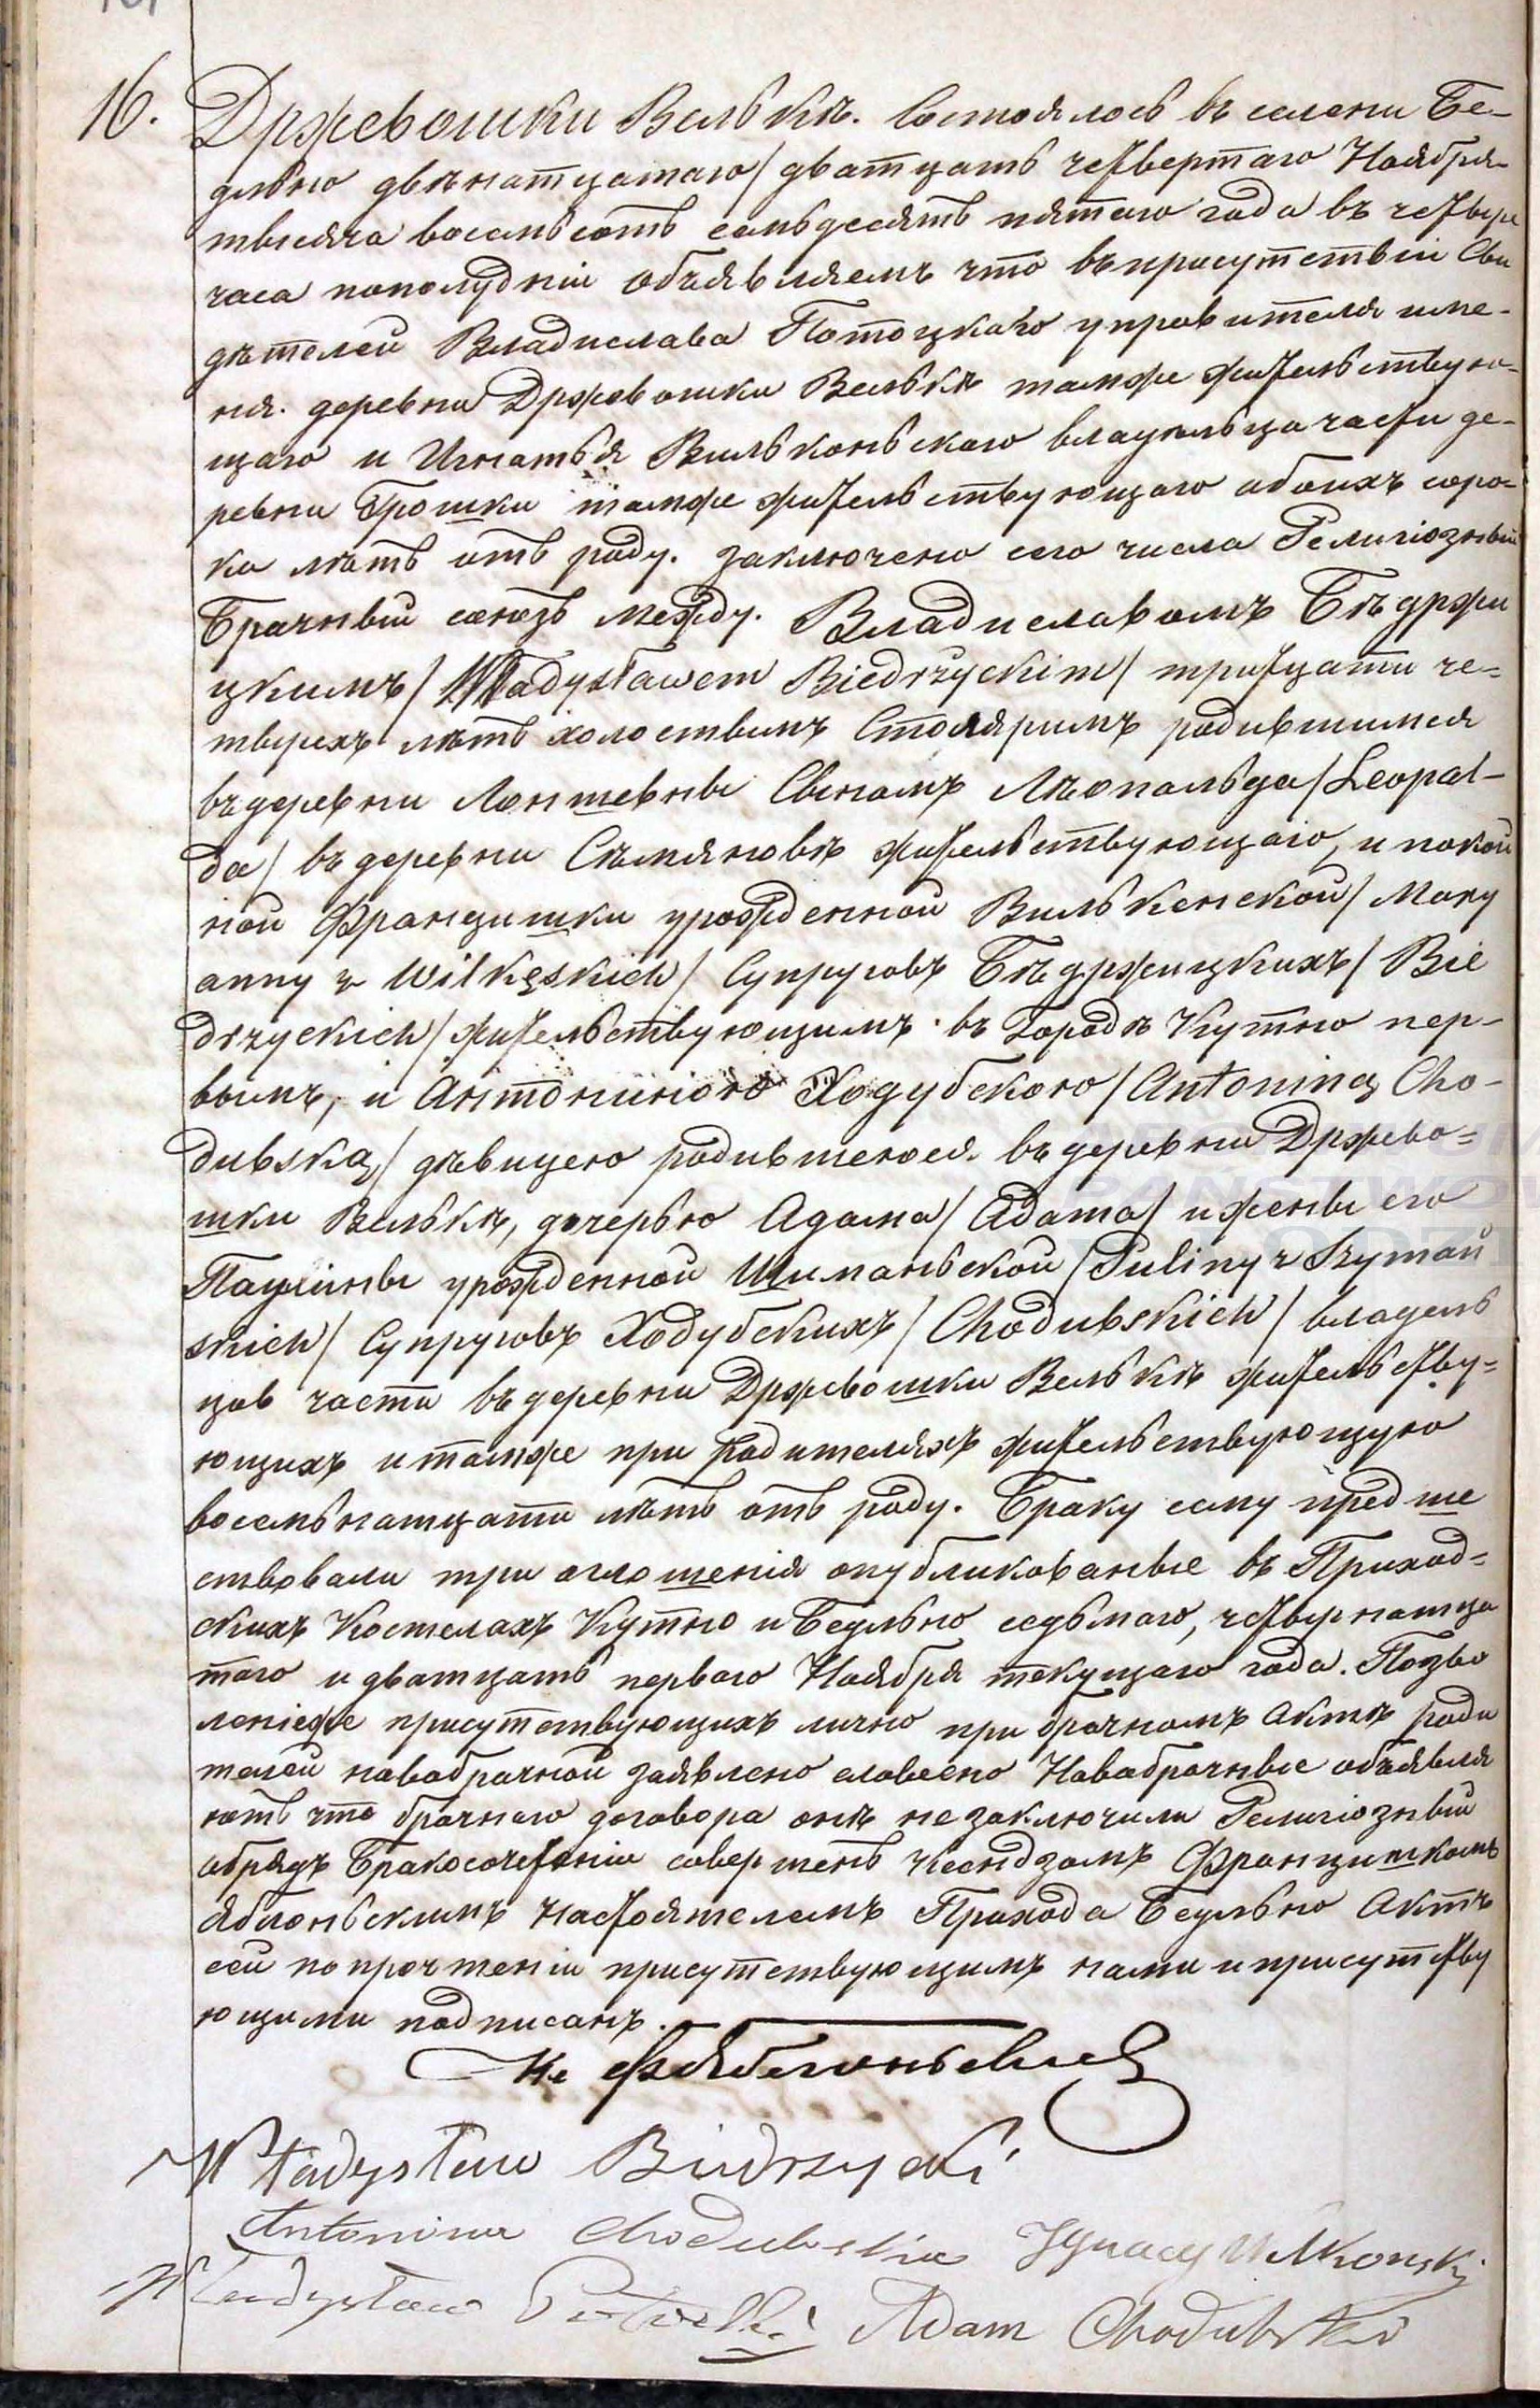 16. Држевошки Вельки. Состоялось въ селени Бе-
дльно двѣнатцатаго/ дватцать четвертаго Ноября
тысяча восемьсотъ семьдесятъ пятаго года въ четыре
часа пополудніи объявляемъ что въ присутствіи Сви
дѣтелей Владислава Потоцкаго управителя име-
ния. деревни Држевошки Вельки тамже жительствую-
щаго и Игнатья Вильконьскаго владѣльца части де-
ревни Грошки тамже жительствующаго обоихъ соро-
ка лѣтъ отъ роду. заключено сего числа Религіозный
Брачный союзъ между. Владиславомъ Бѣдржи
цкимъ/ Władysławem Biedrzyckim/ тритцати че-
тырехъ лѣтъ холостымъ Столяримъ родившимся
въ деревни Лонтевны Сыномъ Лѣопальда/ Leopol-
da/ въ деревни Сѣмяновѣ жительствующаго, и покой
ной Францишки урожденной Вилькенской/ Mary
anny z Wilkęskich/ Супруговъ Бѣдржицкихъ/ Bie
drzyckich/ жительствующимъ. въ Городѣ Кутно пер-
вымъ, и Антониною Ходубскою/ Antoniną Cho-
dubską/ дѣвицею родившеюся. въ деревни Држево-
шки Вельки, дочерью Адама/ Adama/ и жены его
Паулины урожденной Шиманьской/ Puliny z Szymań
skich/ Супруговъ Ходубскихъ/ Chodubskich/ владель
цов части въ деревни Држевошки Вельки жительству-
ющихъ и тамже при Родителяхъ жительствующую
восемьнатцати лѣтъ отъ роду. Браку сему предше
ствовали три оглошенія опубликованые въ Приход-
скихъ Костелахъ Кутно и Бедльно седьмаго, четырнатца
таго и дватцать перваго Ноября текущаго года. Позво
леніеже присутствующихъ лично при брачномъ Актѣ роди
телей новобрачной заявлено словесно Новобрачные объявля
ютъ что брачнаго договора онѣ не заключили Религіозный
обрядъ Бракосочетаніи совершенъ Ксендзомъ Францишкомъ
Яблоньскимъ Настоятелемъ Прихода Бедльно Актъ
сей по прочтеніи присутствующимъ нами и присутству
ющими подписанъ.
Кс Ф Яблоньскій
Władysław Biedrzycki
Antonina Chodubska Ignacy Wilkoński
Władysław Potocki Adam Chodubski